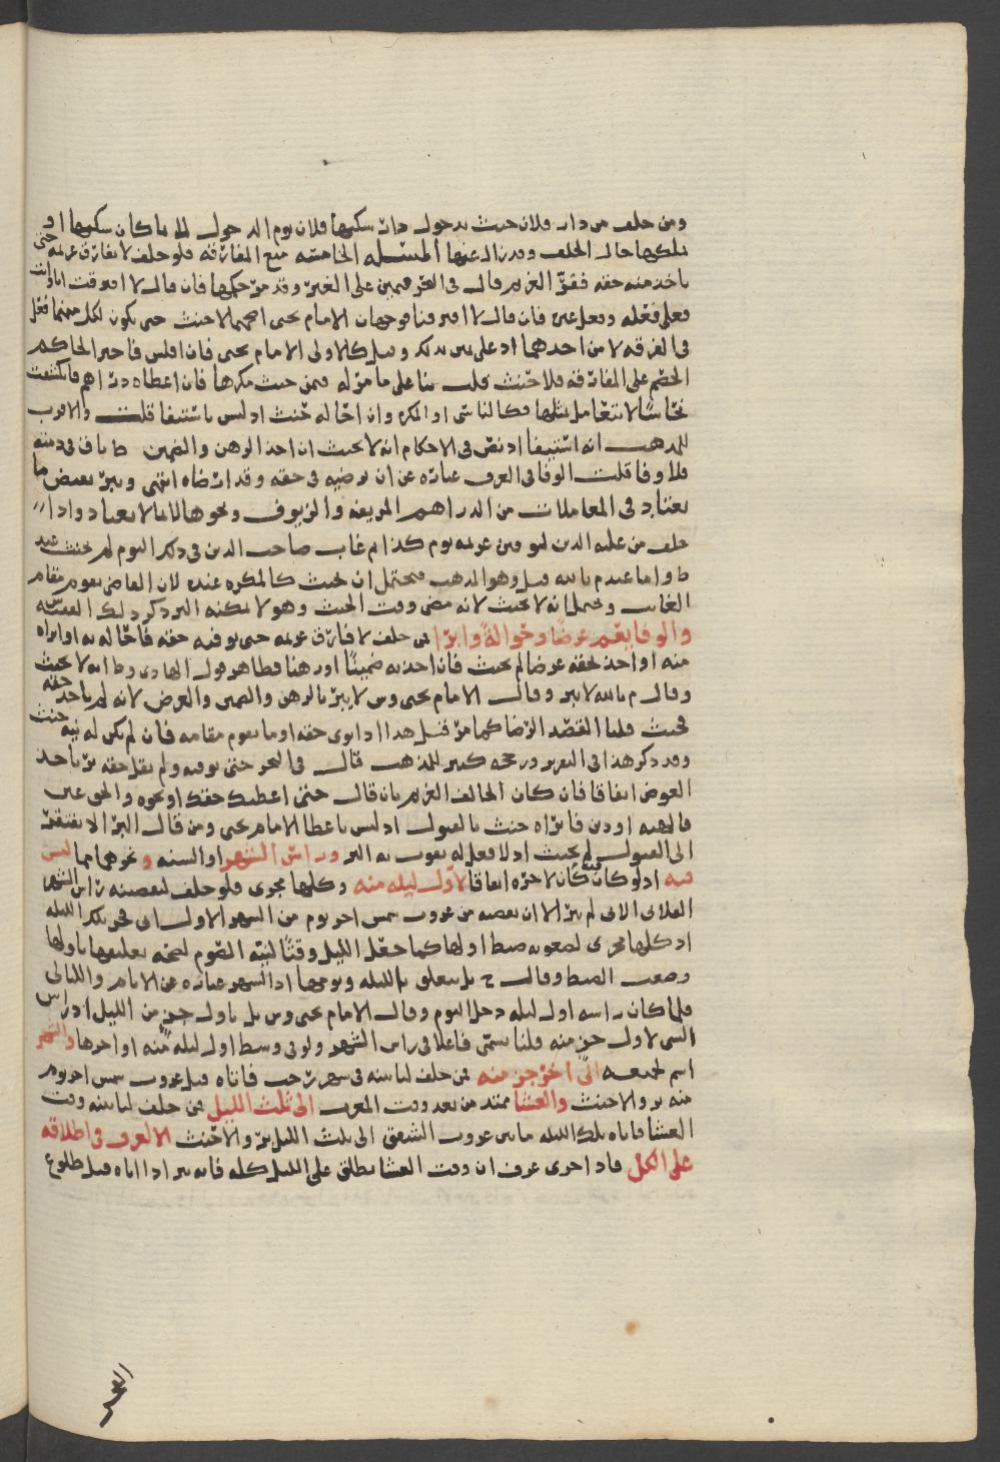 ومن حلف من دار فلان حنث بدخول دار سكنها فلان يوم الدخول لا ما كان سكنها او
ملكها حال الحلف وقد زال عنها المسئلة الخامسة منع المفارقة فلو حلف لا يفارق غريمه حتى
ياخذ منه حقه ففر الغريم قال في فمين على الغير وقد مر حكمها فان قال لا افترقت انا وانت
فعلى فعله وفعل غيره فان قال لا افترقنا فوجهان الامام يحيى اصحهما لا حنث حتى يكون لكل منهما فعل
في الفرقة لا من احدهما اد على بدنك وقيل كالاولى الامام يحيى فان افلس فاجبر الحاكم
الخصم على المفارقة فلا حنث قلت بنا على ما مر له فمن حنث مكرها فان اعطاه دراهم فانكشفت
نحاسًا لا يتعامل بمثلها فكالناسي او المكره وان احاله حنث اد ليس باستيفا قلت والاقرب
للمذهب انه استيفا اد نص في الاحكام انه لا يحنث ان اخذ الرهن والضمين ط باق في ذمته
فلا وفا قلت الوفا في العرف عبارة عن ان يوفيه في حقه وقد ارضاه انتهى ويبر بعض ما
يعتاد في المعاملات من الدراهم المزيفة والزيوف ونحوها لا بما لا يعتاد واذا
حلف من عليه الدين ليوفين غريمه يوم كذا ثم غاب صاحب الدين في ذلك اليوم لم يحنث عند
ط واما عند م بالله قيل وهو المذهب فيحتمل ان يحنث كالمكره عنده لان القاضي يقوم مقام
الغائب ويحتمل انه لا يحنث لانه مضى وقت الحنث وهو لا يمكنه البر ذكر ذلك الفقيه س
والوفا يعم عرضًا وحوالةً وابرا فمن حلف لا فارق غريمه حتى يوفيه حقه فاحاله به او ابراه
منه او اخذ بحقه عرضا لم يحنث فان اخذ به ضمينًا او رهنا فظاهر قول الهادي وط انه لا يحنث
وقال م بالله لا يبر وقال الامام يحيى وس لا يبر بالرهن والضمين والعرض لانه لم ياخذ حقه
فحنث قلنا القصد الرضا كما مر قيل هذا اذا نوى حقه او ما يقوم مقامه فان لم يكن له نية حنث
وقد ذكر هذا في التقرير ورجحه كثير للمذهب قال في البحر حتى يوفيه ولم يقل حقه بر باخذ
العوض اتفاقا فان كان الحالف الغريم بان قال حتى اعطيك حقك او نحوه والحق عين
فالهبه او دين فابراه حنث بالقبول اد ليس باعطا الامام يحيى ومن قال البرا لا يفتقر
الى القبول لم يحنث اد لا فعل له يفوت به البر وراس الشهر او السنه ونحوهما مما ليس
فيه اد لو كان فيه كان لاخره اتفاقا لاول ليله منه وكلها مجرى فلو حلف ليقضينه راس الشهر
الفلاني الاتي لم يبر الا ان يقضيه من غروب شمس اخر يوم من الشهر الاول الى فجر تلك الليله
اد كلها مجرى لصعوبه ضبط اولها كما جعل الليل وقتًا لنيّة الصوم لصحه تعليقها باولها
وصعب الضبط وقال ح بل يتعلق بالليله ويومها اد الشهر عباره عن الايام والليالي
فلما كان راسه اول ليله دخل اليوم وقال الامام يحيى وس بل باول جزءٍ من الليل اد راس
الشي لاول جزء منه قلنا يسمى فاعلا في راس الشهر ولو في وسط اول ليله منه او اخرها والشهر
اسم لجميعه الى اخر جزء منه فمن حلف لياتينه في شهر رجب فاتاه قبل غروب شمس اخر يوم
منه بر والا حنث والعشا ممتد من بعد وقت المغرب الى ثلث الليل فمن حلف لياتينه وقت
العشا فاتاه تلك الليله ما بين غروب الشفق الى ثلث الليل بر والا حنث الا لعرف في اطلاقه
على الكل فاذ اجرى عرف ان وقت العشا يطلق على الليل كله فانه يبر اذا اتاه قبل طلوع